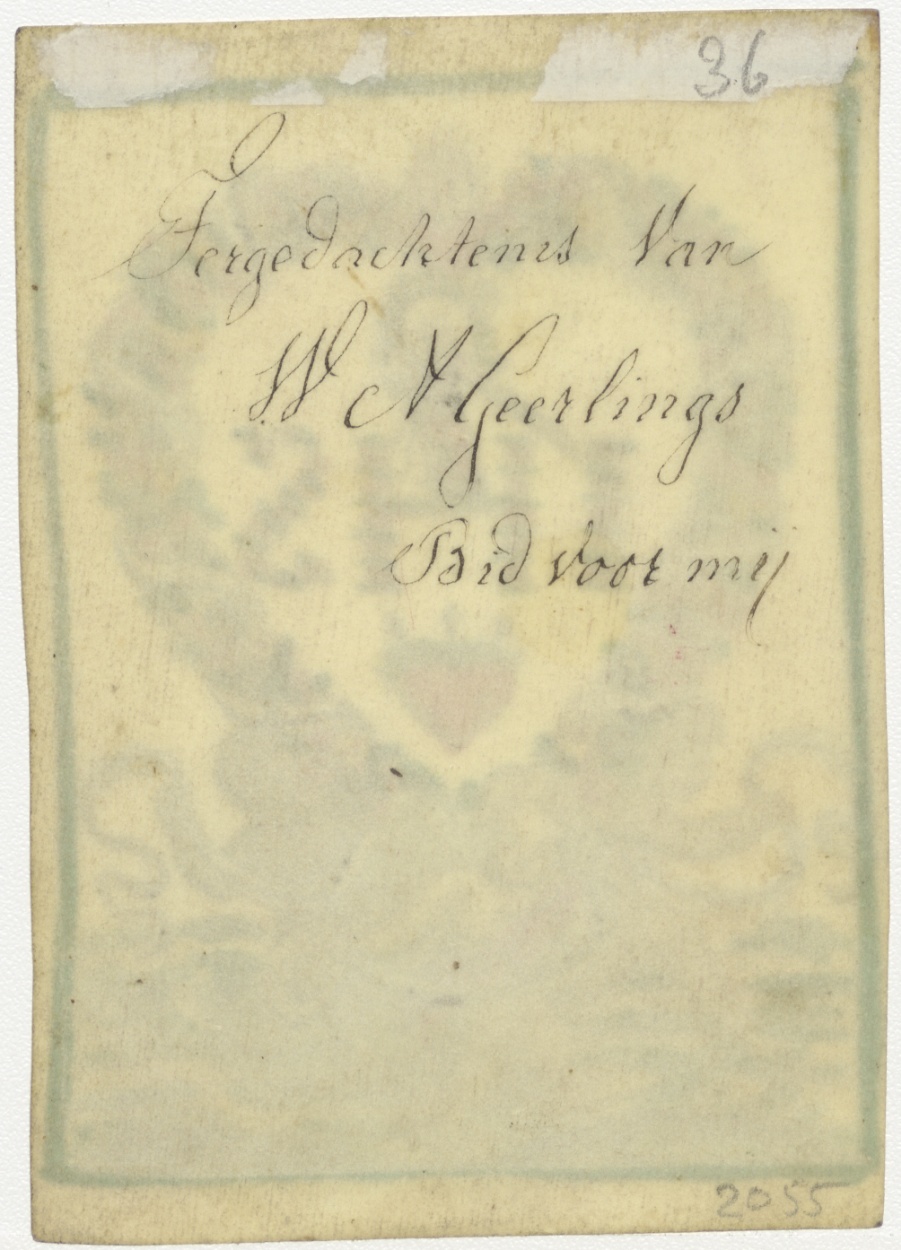 36
Tergedachtenis Van
W A Geerlings
Bid voor mij
2055